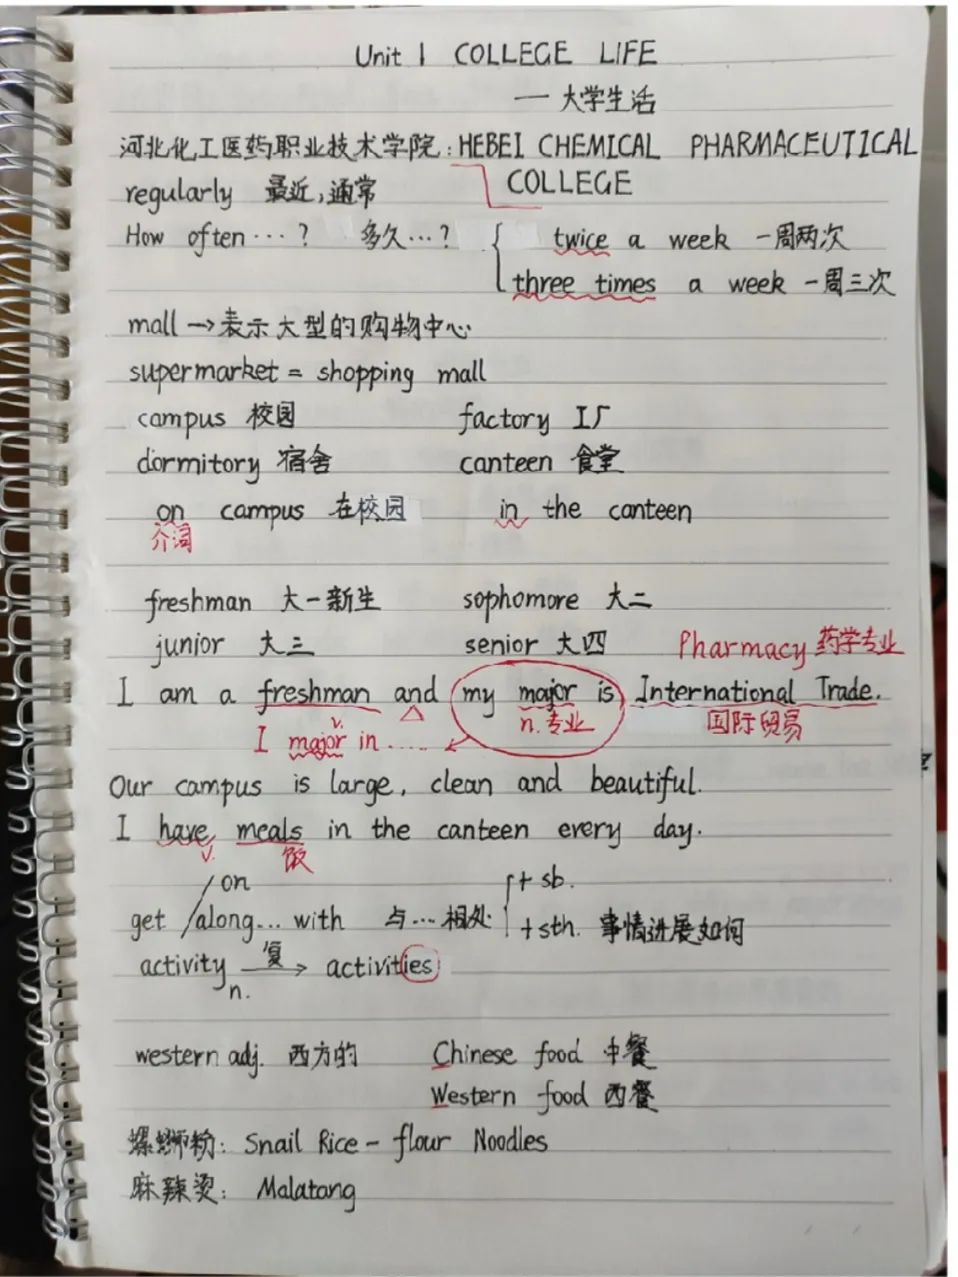 Unit 1 COLLEGE LIFE
— 大学生活
河北化工医药职业技术学院: HEBEI CHEMICAL PHARMACEUTICAL
COLLEGE
regularly 最近,通常
How often …? 多久…? twice a week 一周两次
three times a week 一周三次
mall → 表示大型的购物中心
supermarket = shopping mall
campus 校园 factory 工厂
dormitory 宿舍 canteen 食堂
on campus 在校园 in the canteen
介词
freshman 大一新生 sophomore 大二
junior 大三 senior 大四 Pharmacy 药学专业
I am a freshman and my major is International Trade.
v. n. 专业 国际贸易
I major in ……
Our campus is large, clean and beautiful.
I have meals in the canteen every day.
v. 饭
/on + sb.
get /along… with 与…相处
+ sth. 事情进展如何
activity 复→ activities
n.
western adj. 西方的 Chinese food 中餐
Western food 西餐
螺蛳粉: Snail Rice-flour Noodles
麻辣烫: Malatang